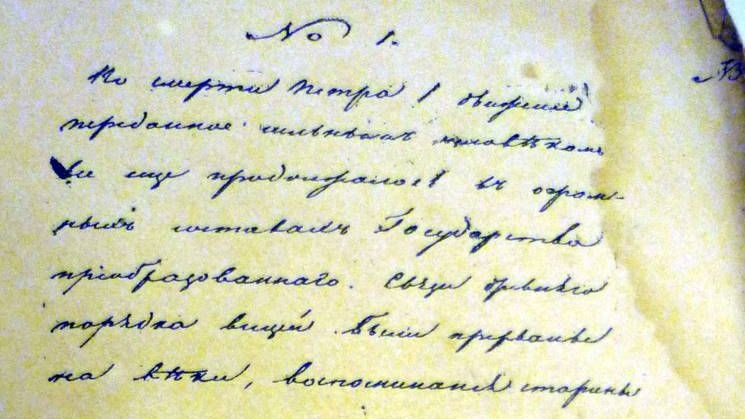 No 1.
По смерти Петра I движенiе
переданное сильнымъ человѣкомъ
все еще продолжалось въ огром-
ныхъ составахъ Государства
преобразованнаго. Связи древняго
порядка вещей были прерваны
на вѣки, воспоминанiя старины